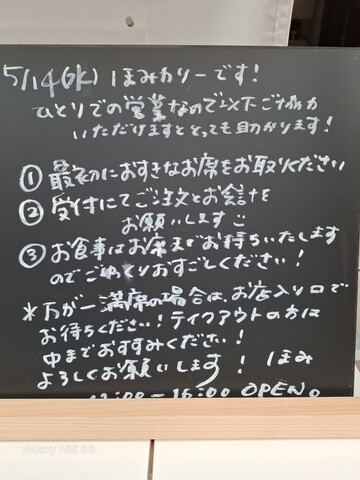 5/14(水) ほみカリーです!
ひとりでの営業なので以下ご協力
いただけますととっても助かります!
① 最初におすきなお席をお取りください
② 受付にてご注文とお会計を
お願いします
③ お食事はお席までお持ちいたします
のでごゆっくりおすごしください!
*万が一満席の場合は、お店入り口で
お待ちください!テイクアウトの方は
中までおすすみください!
よろしくお願いします! ほみ
OPEN。
Galaxy A55 5G